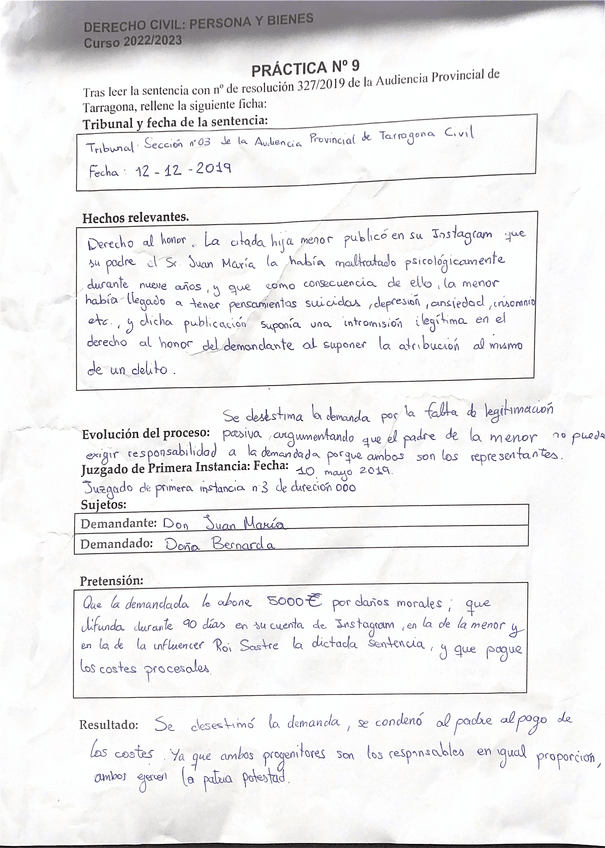 DERECHO CIVIL: PERSONA Y BIENES
Curso 2022/2023
PRÁCTICA Nº 9
Tras leer la sentencia con nº de resolución 327/2019 de la Audiencia Provincial de
Tarragona, rellene la siguiente ficha:
Tribunal y fecha de la sentencia:
Tribunal: Sección nº03 de la Audiencia Provincial de Tarragona Civil
Fecha: 12-12-2019
Hechos relevantes.
Derecho al honor. La citada hija menor publicó en su Instagram que
su padre el Sr Juan María la había maltratado psicológicamente
durante nueve años, y que como consecuencia de ello, la menor
había llegado a tener pensamientos suicidas, depresión, ansiedad, insomnio
etc., y dicha publicación suponía una intromisión ilegítima en el
derecho al honor del demandante al suponer la atribución al mismo
de un delito.
Se desestima la demanda por la falta de legitimación
Evolución del proceso: pasiva, argumentando que el padre de la menor no puede
exigir responsabilidad a la demandada porque ambos son los representantes.
Juzgado de Primera Instancia: Fecha: 10 mayo 2019.
Juzgado de primera instancia n 3 de dirección 000
Sujetos:
Demandante: Don Juan María
Demandado: Doña Bernarda
Pretensión:
Que la demandada le abone 5000€ por daños morales; que
difunda durante 90 días en su cuenta de Instagram, en la de la menor y
en la de la influencer Roi Sastre la dictada sentencia, y que pague
los costes procesales.
Resultado: Se desestimó la demanda, se condenó al padre al pago de
los costes. Ya que ambos progenitores son los responsables en igual proporción,
ambos ejercen la patria potestad.